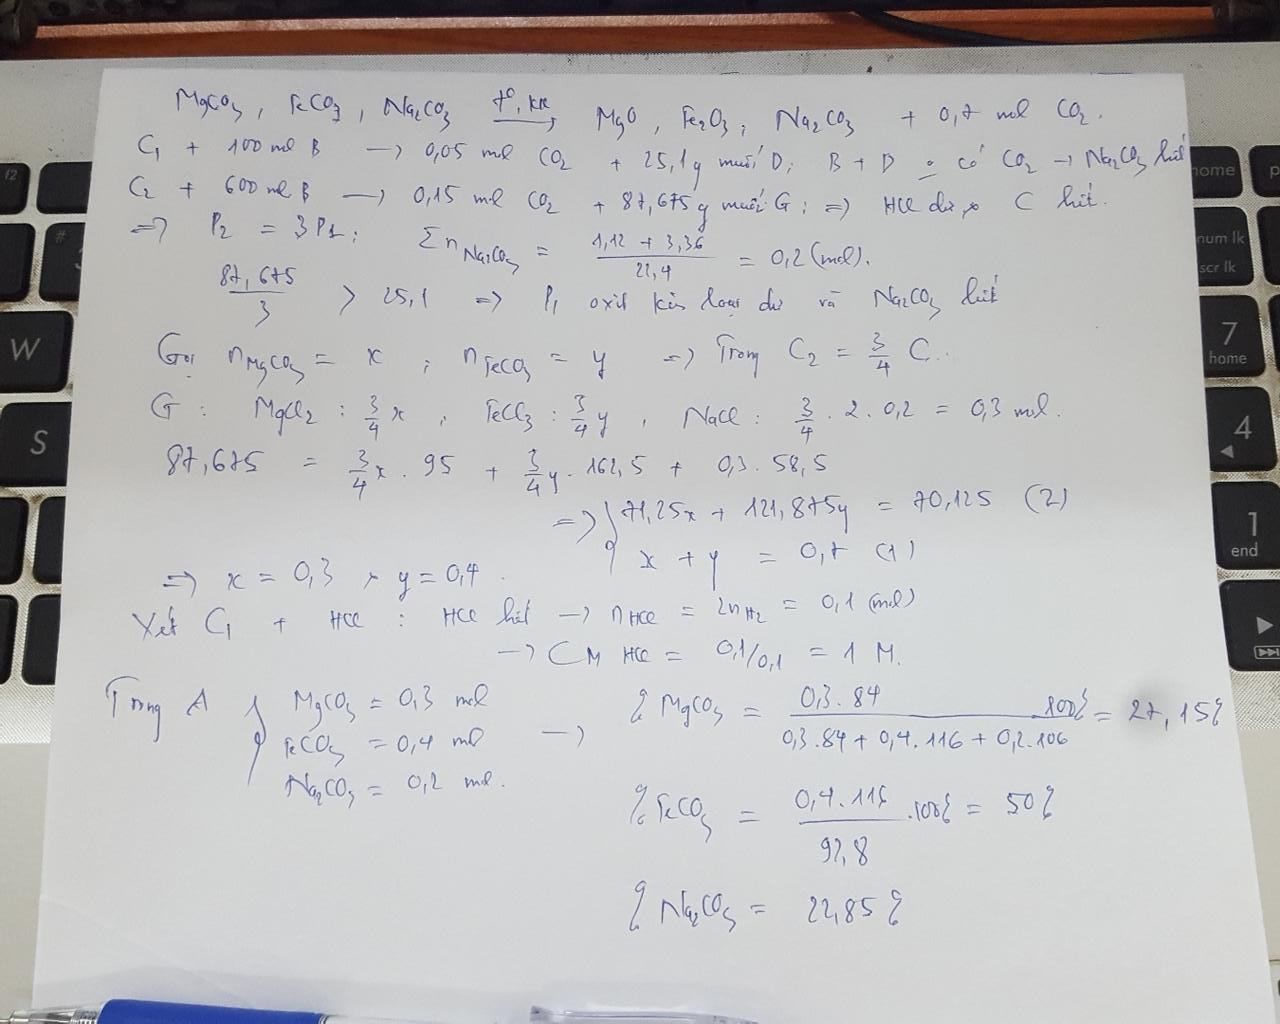 MgCO3, FeCO3, Na2CO3 t°, kk → MgO, Fe2O3, Na2CO3 + 0,7 mol CO2.
C1 + 100 ml B → 0,05 mol CO2 + 25,1 g muối D; B + D có CO2 → Na2CO3 hết
C2 + 600 ml B → 0,15 mol CO2 + 87,675 g muối G; ⇒ HCl dư, C hết.
⇒ P2 = 3P1; Σn Na2CO3 = (1,12 + 3,36)/22,4 = 0,2 (mol).
87,675/3 > 25,1 ⇒ P1 oxit kim loại dư và Na2CO3 hết
Gọi nMgCO3 = x ; nFeCO3 = y ⇒ Trong C2 = 3/4 C.
G : MgCl2 : 3/4 x , FeCl3 : 3/4 y , NaCl : 3/4 . 2 . 0,2 = 0,3 mol.
87,675 = 3/4 x . 95 + 3/4 y . 162,5 + 0,3 . 58,5
⇒ { 71,25x + 121,875y = 70,125 (2)
x + y = 0,7 (1)
⇒ x = 0,3 , y = 0,4 .
Xét C1 + HCl : HCl hết → nHCl = 2nH2 = 0,1 (mol)
→ CM HCl = 0,1/0,1 = 1 M.
Trong A { MgCO3 = 0,3 mol
FeCO3 = 0,4 mol
Na2CO3 = 0,2 mol.
→ % MgCO3 = (0,3 . 84)/(0,3 . 84 + 0,4 . 116 + 0,2 . 106) 100% = 27,15%
% FeCO3 = (0,4 . 116)/92,8 . 100% = 50%
% Na2CO3 = 22,85%
f2
home
#
num lk
scr lk
W
7
home
S
4
1
end